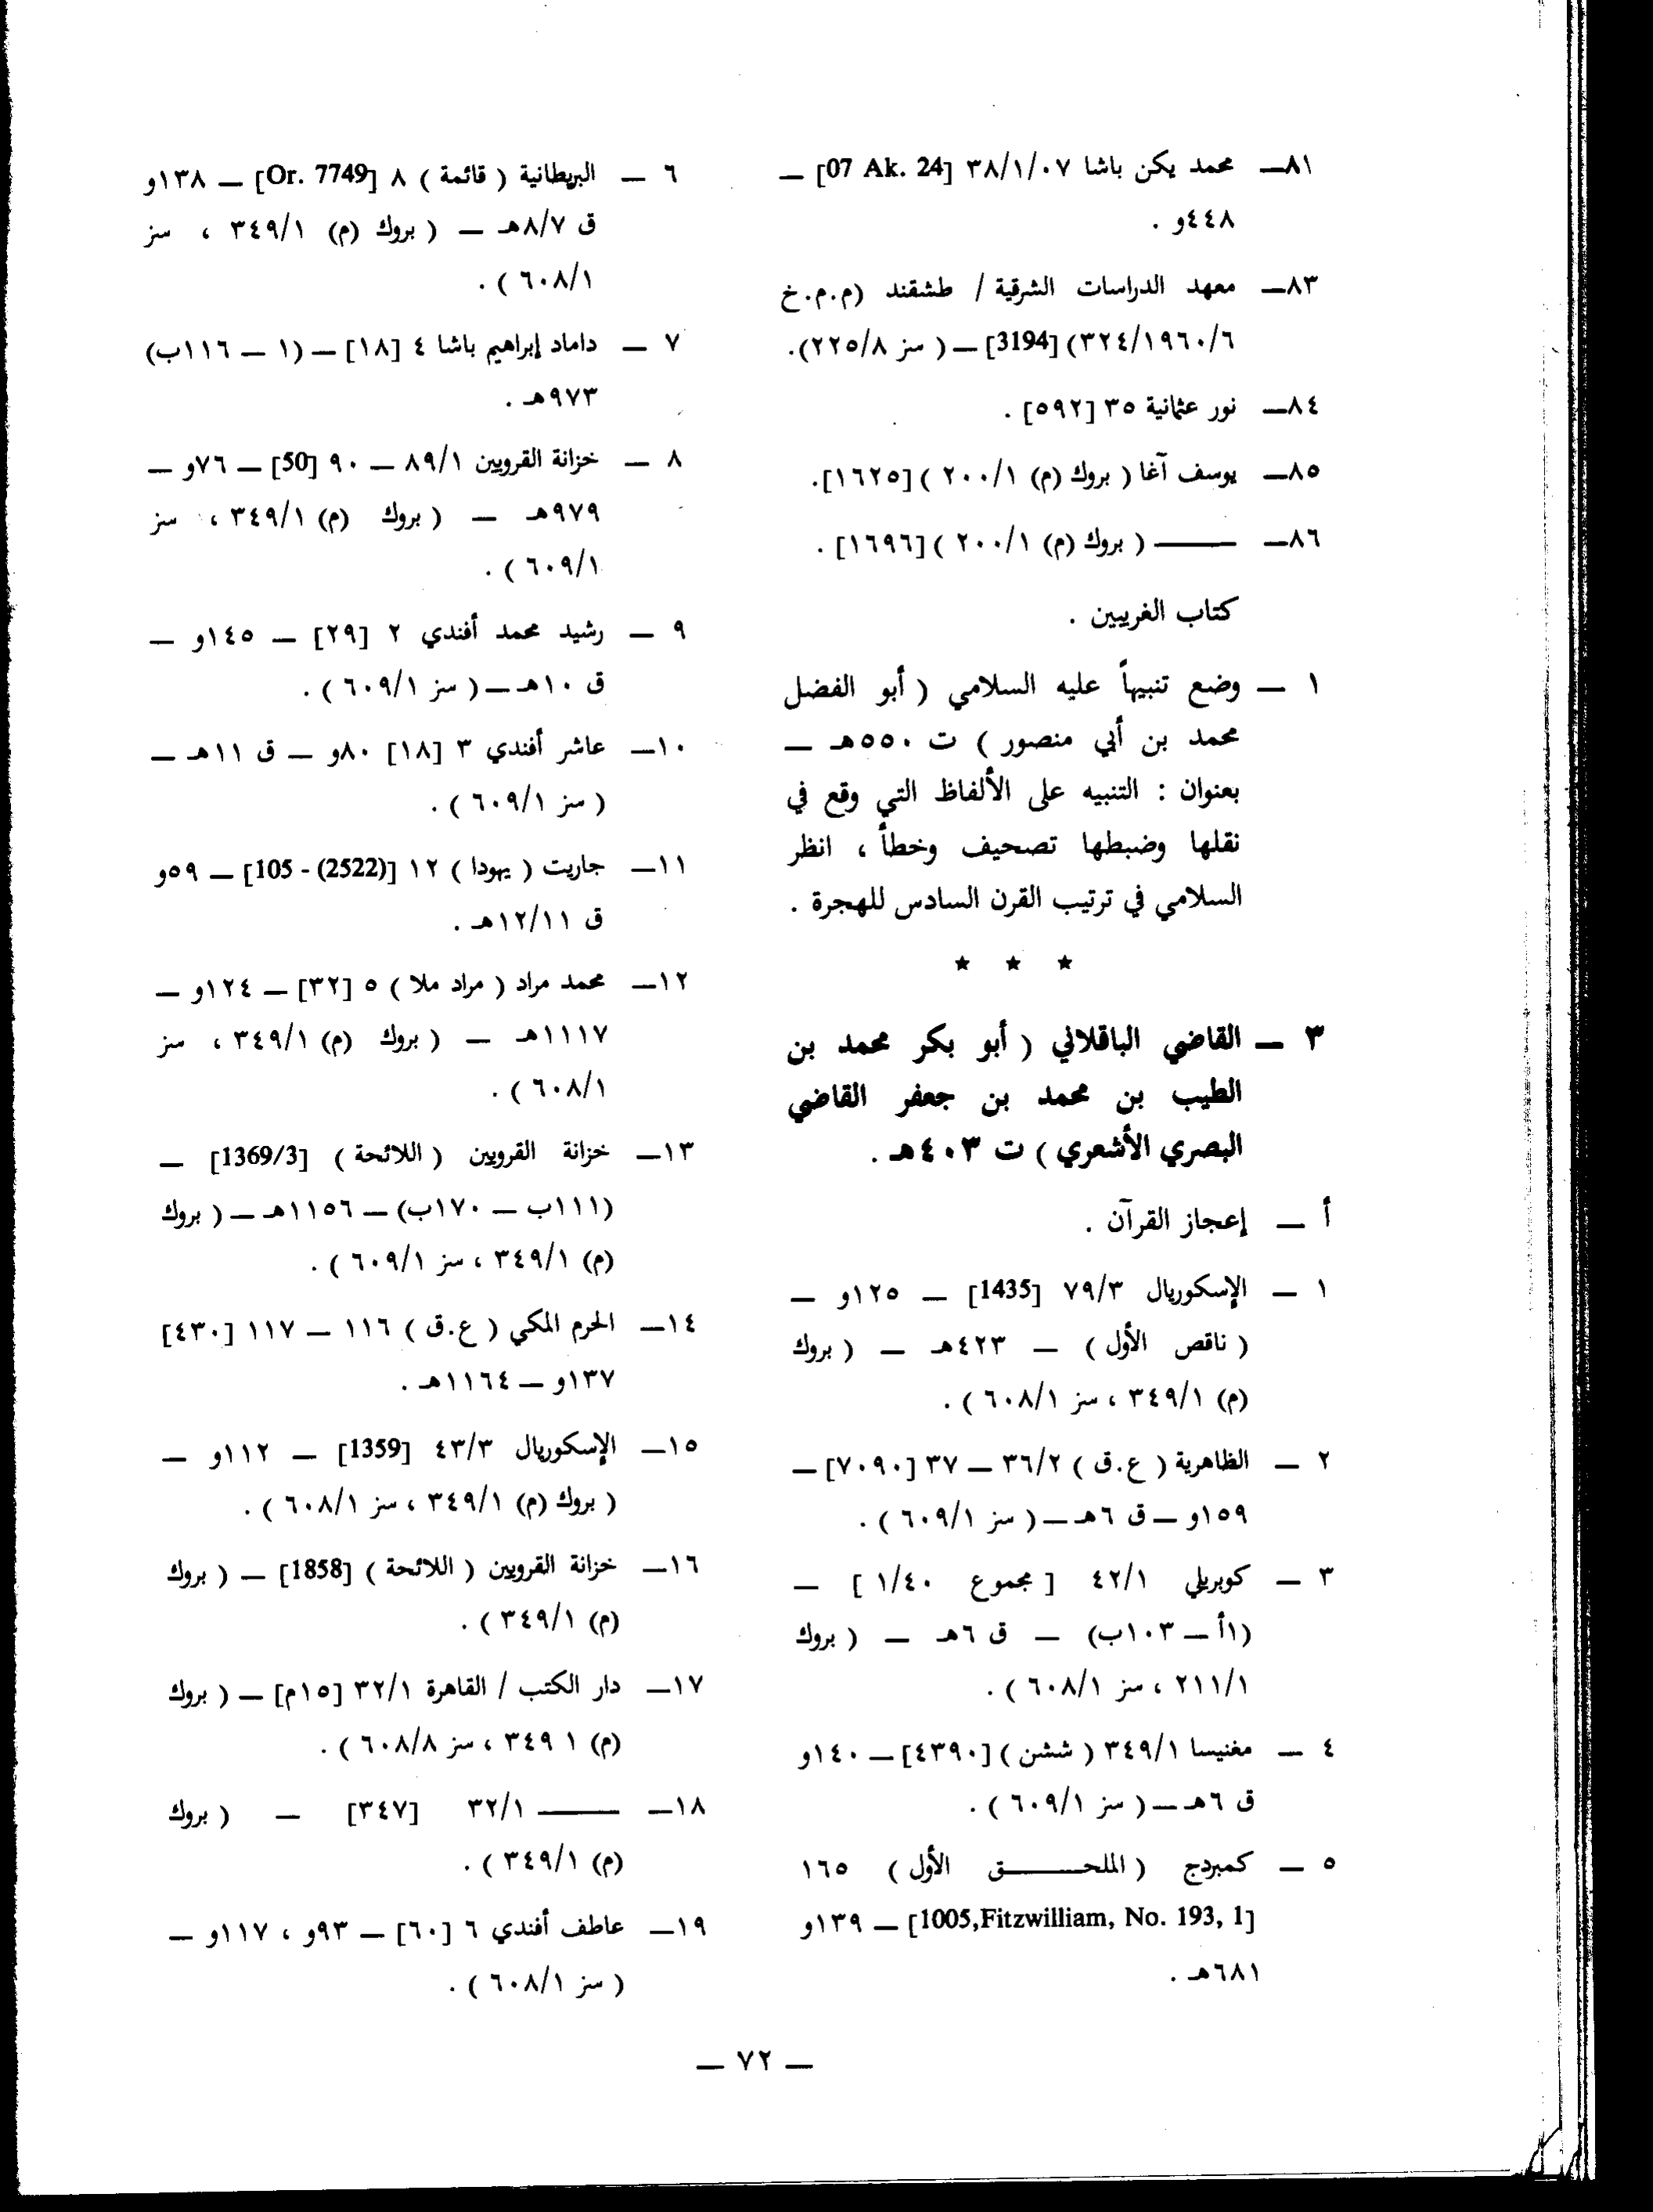 ٨١ـ محمد يكن باشا ٣٨/١/٠٧ [07 Ak. 24] ـ
٤٤٨و .
٨٣ـ معهد الدراسات الشرقية / طشقند (م.م.خ
٣٢٤/١٩٦٠/٦) [3194] ـ ( سز ٢٢٥/٨).
٨٤ـ نور عثمانية ٣٥ [٥٩٢] .
٨٥ـ يوسف آغا ( بروك (م) ٢٠٠/١ ) [١٦٢٥].
٨٦ـ ــــــ ( بروك (م) ٢٠٠/١ ) [١٦٩٦] .
كتاب الغريبين .
١ ـ وضع تنبيهاً عليه السلامي ( أبو الفضل
محمد بن أبي منصور ) ت ٥٥٠هـ ـ
بعنوان : التنبيه على الألفاظ التي وقع في
نقلها وضبطها تصحيف وخطأ ، انظر
السلامي في ترتيب القرن السادس للهجرة .
★ ★ ★
٣ ـ القاضي الباقلاني ( أبو بكر محمد بن
الطيب بن محمد بن جعفر القاضي
البصري الأشعري ) ت ٤٠٣هـ .
أ ـ إعجاز القرآن .
١ ـ الإسكوريال ٧٩/٣ [1435] ـ ١٢٥و ـ
( ناقص الأول ) ـ ٤٢٣هـ ـ ( بروك
(م) ٣٤٩/١ ، سز ٦٠٨/١ ) .
٢ ـ الظاهرية ( ع.ق ) ٣٦/٢ ـ ٣٧ [٧٠٩٠] ـ
١٥٩و ـ ق ٦هـ ـ ( سز ٦٠٩/١ ) .
٣ ـ كوبريلي ٤٢/١ [ مجموع ١/٤٠ ] ـ
(١أ ـ ١٠٣ب) ـ ق ٦هـ ـ ( بروك
٢١١/١ ، سز ٦٠٨/١ ) .
٤ ـ مغنيسا ٣٤٩/١ ( ششن ) [٤٣٩٠] ـ ١٤٠و
ق ٦هـ ـ ( سز ٦٠٩/١ ) .
٥ ـ كمبردج ( الملحـــــق الأول ) ١٦٥
[1005,Fitzwilliam, No. 193, 1] ـ ١٣٩و
٦٨١هـ .
٦ ـ البريطانية ( قائمة ) ٨ [Or. 7749] ـ ١٣٨و
ق ٨/٧هـ ـ ( بروك (م) ٣٤٩/١ ، سز
٦٠٨/١ ) .
٧ ـ داماد إبراهيم باشا ٤ [١٨] ـ (١ ـ ١١٦ب)
٩٧٣هـ .
٨ ـ خزانة القرويين ٨٩/١ ـ ٩٠ [50] ـ ٧٦و ـ
٩٧٩هـ ـ ( بروك (م) ٣٤٩/١ ، سز
٦٠٩/١ ) .
٩ ـ رشيد محمد أفندي ٢ [٢٩] ـ ١٤٥و ـ
ق ١٠هـ ـ ( سز ٦٠٩/١ ) .
١٠ـ عاشر أفندي ٣ [١٨] ٨٠و ـ ق ١١هـ ـ
( سز ٦٠٩/١ ) .
١١ـ جاريت ( يهودا ) ١٢ [105 - (2522)] ـ ٥٩و
ق ١٢/١١هـ .
١٢ـ محمد مراد ( مراد ملا ) ٥ [٣٢] ـ ١٢٤و ـ
١١١٧هـ ـ ( بروك (م) ٣٤٩/١ ، سز
٦٠٨/١ ) .
١٣ـ خزانة القرويين ( اللائحة ) [1369/3] ـ
(١١١ب ـ ١٧٠ب) ـ ١١٥٦هـ ـ ( بروك
(م) ٣٤٩/١ ، سز ٦٠٩/١ ) .
١٤ـ الحرم المكي ( ع.ق ) ١١٦ ـ ١١٧ [٤٣٠]
١٣٧و ـ ١١٦٤هـ .
١٥ـ الإسكوريال ٤٣/٣ [1359] ـ ١١٢و ـ
( بروك (م) ٣٤٩/١ ، سز ٦٠٨/١ ) .
١٦ـ خزانة القرويين ( اللائحة ) [1858] ـ ( بروك
(م) ٣٤٩/١ ) .
١٧ـ دار الكتب / القاهرة ٣٢/١ [١٥م] ـ ( بروك
(م) ١ ٣٤٩ ، سز ٦٠٨/٨ ) .
١٨ـ ــــــ ٣٢/١ [٣٤٧] ـ ( بروك
(م) ٣٤٩/١ ) .
١٩ـ عاطف أفندي ٦ [٦٠] ـ ٩٣و ، ١١٧و ـ
( سز ٦٠٨/١ ) .
ـ ٧٢ ـ